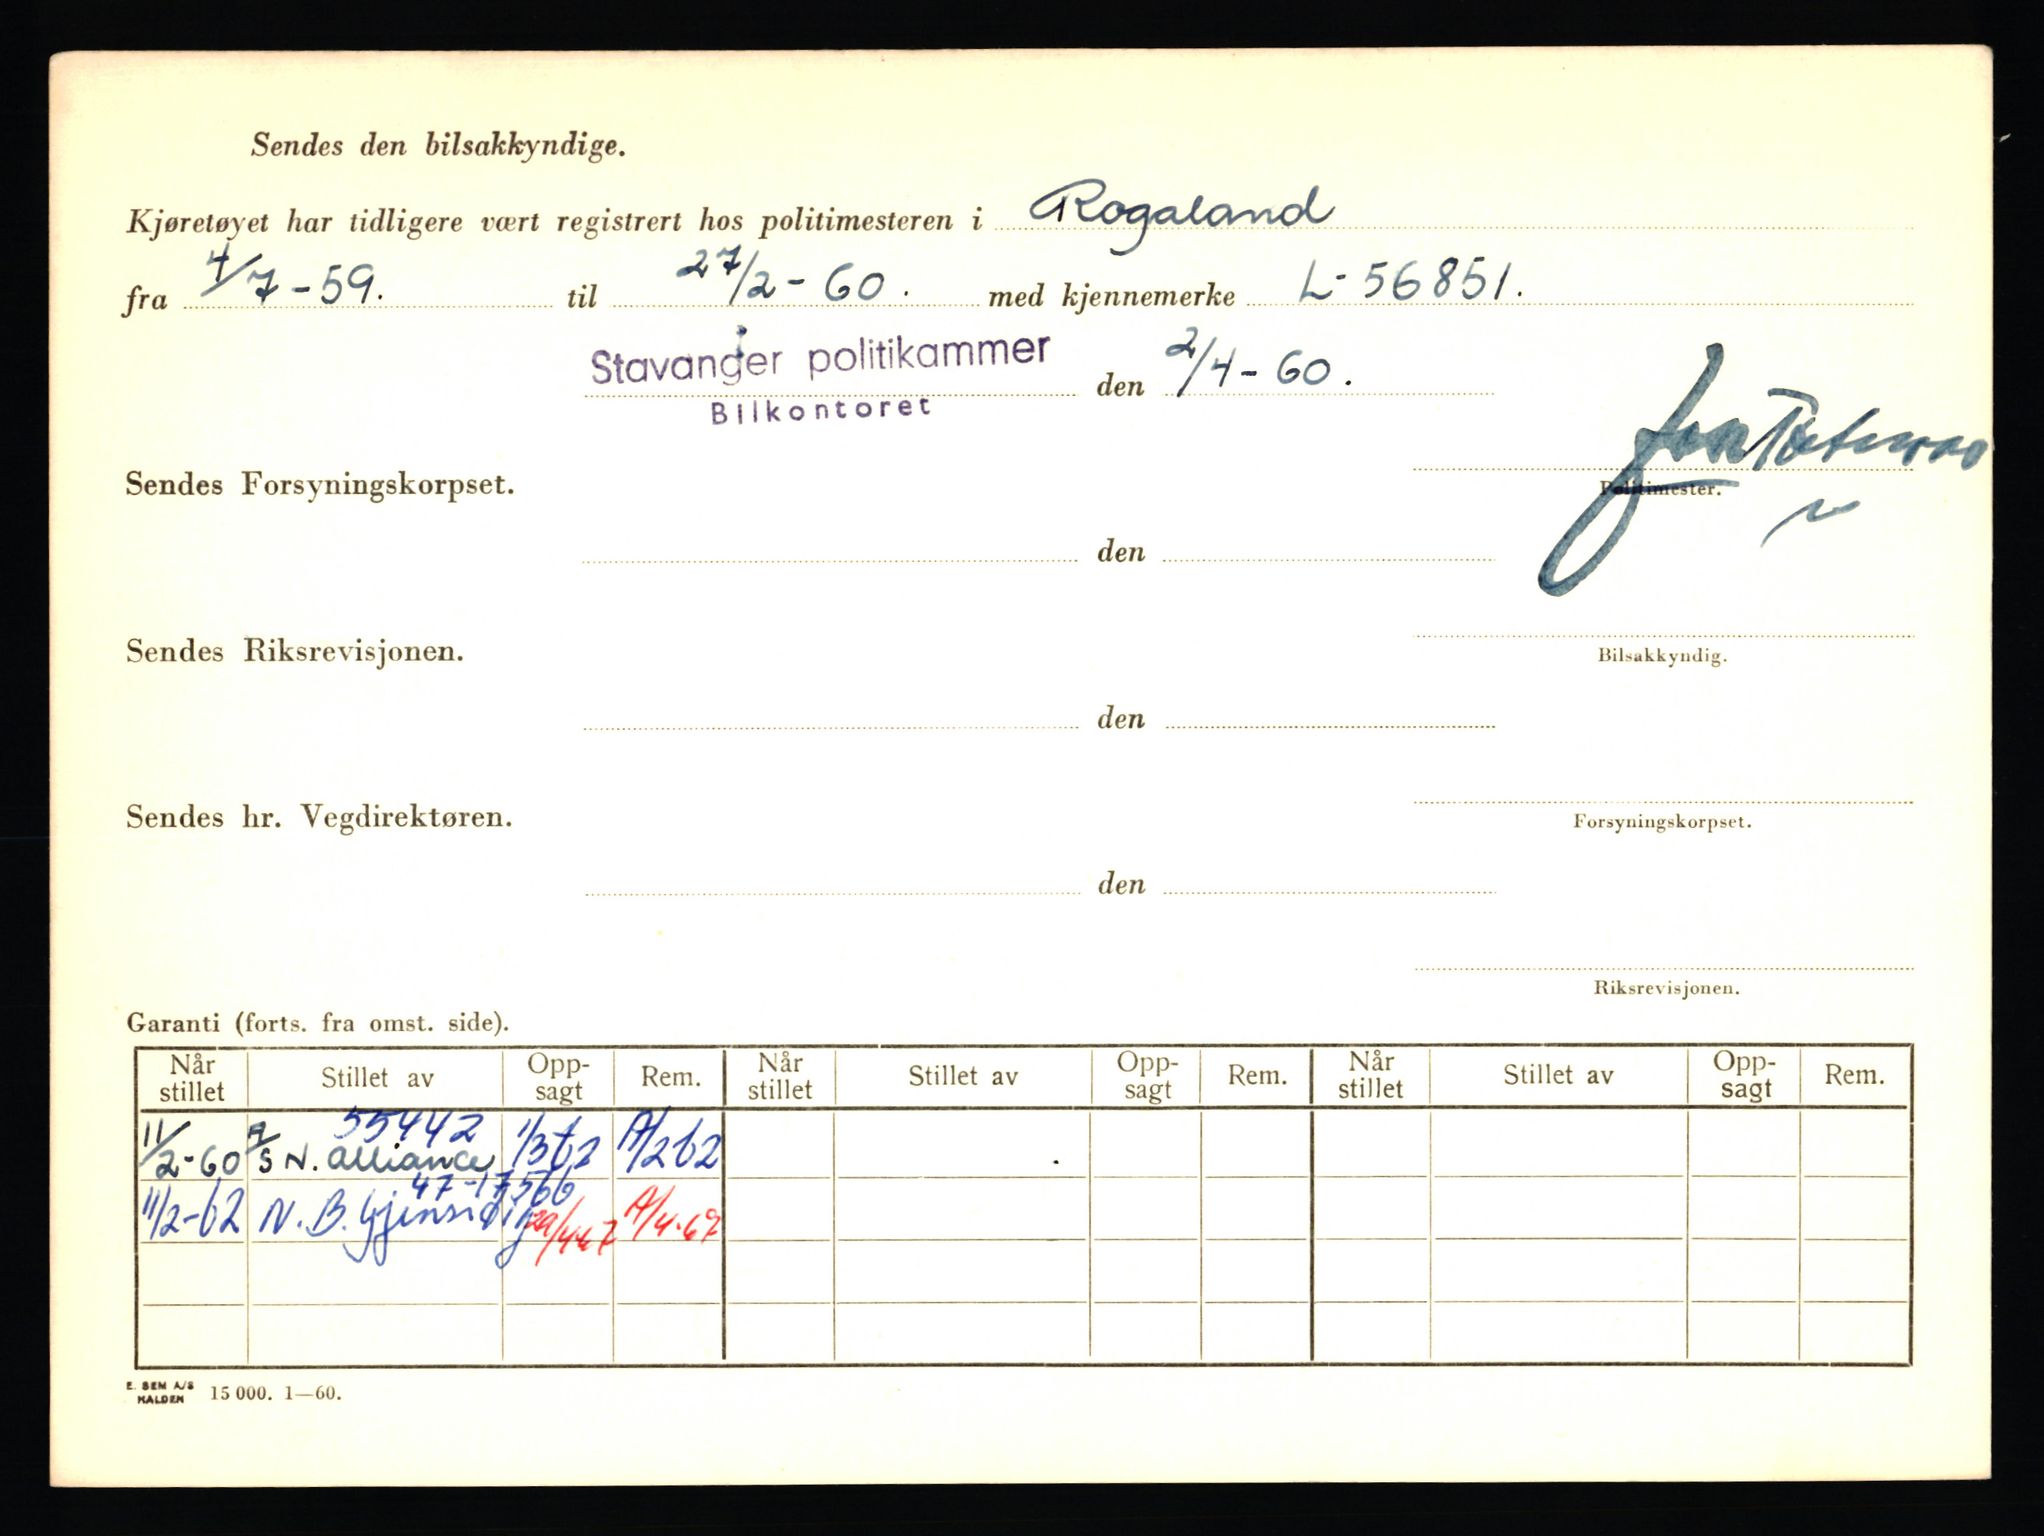 Sendes den bilsakkyndige.
Kjøretøyet har tidligere vært registrert hos politimesteren i Rogaland
fra 4/7-59. til 27/2-60. med kjennemerke L-56851.
Stavanger politikammer den 2/4-60.
Bilkontoret
Politimester.
Sendes Forsyningskorpset.
den
Bilsakkyndig.
Sendes Riksrevisjonen.
den
Forsyningskorpset.
Sendes hr. Vegdirektøren.
den
Riksrevisjonen.
Garanti (forts. fra omst. side).
Når stillet Stillet av Opp-sagt Rem. Når stillet Stillet av Opp-sagt Rem. Når stillet Stillet av Opp-sagt Rem.
55442
11/2-60 A/S N. Alliance 1/3 62 A/2 62
47-17566
11/2-62 N. B. Gjensidig 29/4-67 A/4-67
E. SEM A/S HALDEN 15 000. 1—60.